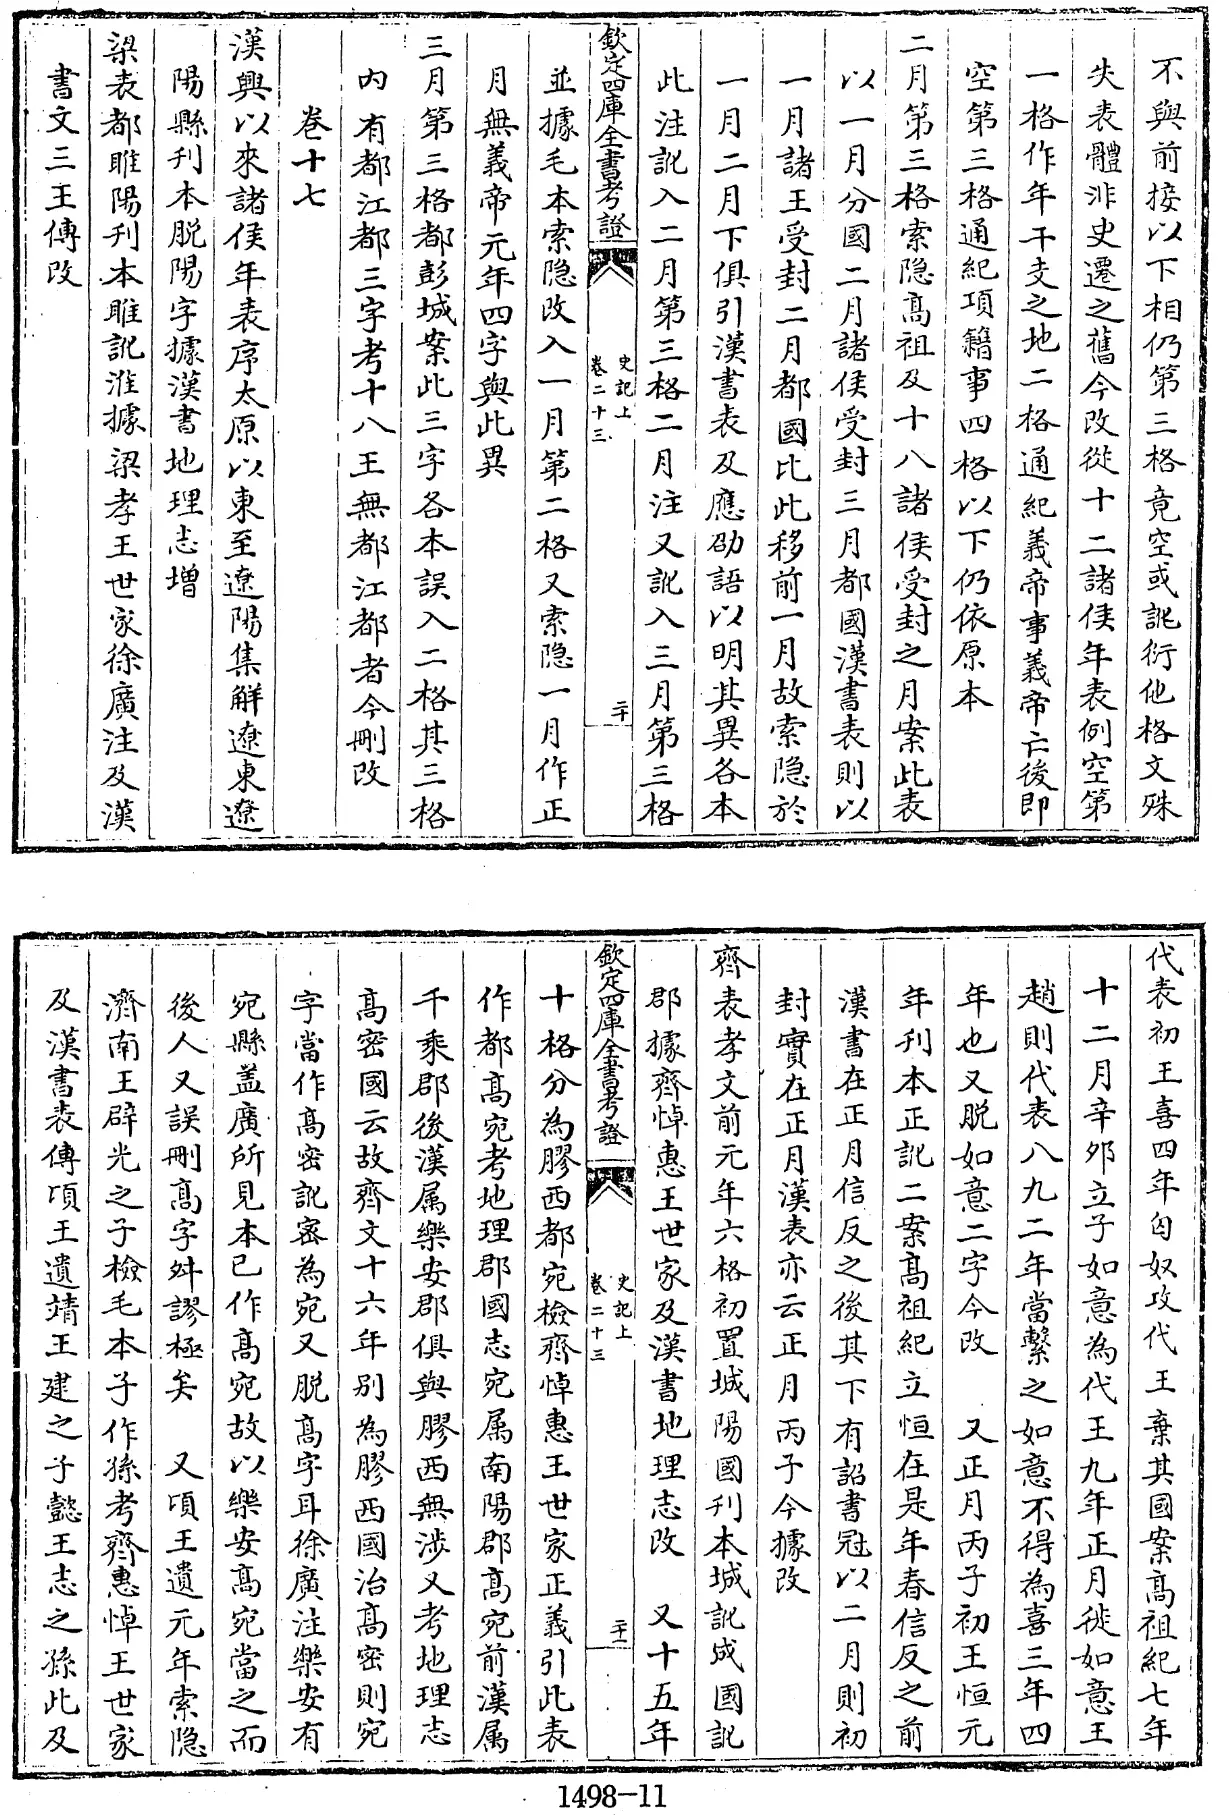 不與前接以下相仍第三格竟空或訛衍他格文殊
失表體非史遷之舊今改從十二諸侯年表例空第
一格作年干支之地二格通紀義帝事義帝亡後即
空第三格通紀項籍事四格以下仍依原本
二月第三格索隐高祖及十八諸侯受封之月案此表
以一月分國二月諸侯受封三月都國漢書表則以
一月諸王受封二月都國比此移前一月故索隐於
一月二月下俱引漢書表及應劭語以明其異各本
此注訛入二月第三格二月注又訛入三月第三格
欽定四庫全書考證
史記上
卷二十三
二十
並據毛本索隐改入一月第二格又索隐一月作正
月無義帝元年四字與此異
三月第三格都彭城案此三字各本誤入二格其三格
内有都江都三字考十八王無都江都者今刪改
卷十七
漢興以來諸侯年表序太原以東至遼陽集解遼東遼
陽縣刊本脱陽字據漢書地理志增
梁表都睢陽刊本睢訛淮據梁孝王世家徐廣注及漢
書文三王傳改
代表初王喜四年匈奴攻代王棄其國案高祖紀七年
十二月辛夘立子如意為代王九年正月徙如意王
趙則代表八九二年當繫之如意不得為喜三年四
年也又脱如意二字今改 又正月丙子初王恒元
年刊本正訛二案高祖紀立恒在是年春信反之前
漢書在正月信反之後其下有詔書冠以二月則初
封實在正月漢表亦云正月丙子今據改
齊表孝文前元年六格初置城陽國刊本城訛成國訛
郡據齊悼惠王世家及漢書地理志改 又十五年
欽定四庫全書考證
史記上
卷二十三
二十一
十格分為膠西都宛檢齊悼惠王世家正義引此表
作都高宛考地理郡國志宛属南陽郡高宛前漢属
千乘郡後漢属樂安郡俱與膠西無涉又考地理志
高密國云故齊文十六年别為膠西國治高密則宛
字當作高密訛密為宛又脱高字耳徐廣注樂安有
宛縣盖廣所見本已作高宛故以樂安高宛當之而
後人又誤刪高字舛謬極矣 又頃王遺元年索隐
濟南王辟光之子檢毛本子作孫考齊惠悼王世家
及漢書表傳頃王遺靖王建之子懿王志之孫此及
1498-11